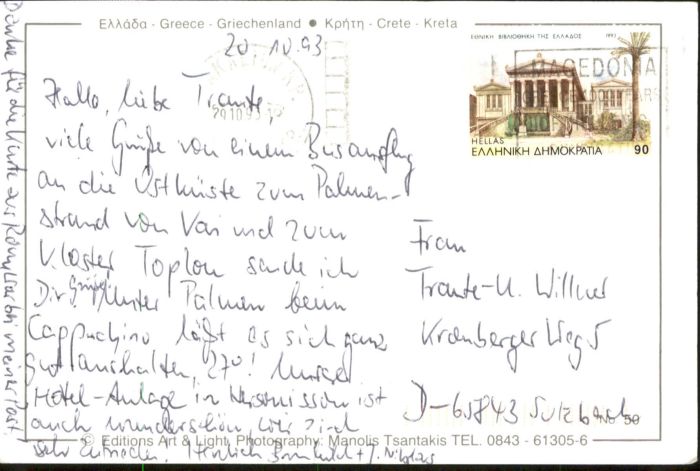 Ελλάδα - Greece - Griechenland ● Κρήτη - Crete - Kreta
20.10.93
ΕΘΝΙΚΗ ΒΙΒΛΙΟΘΗΚΗ ΤΗΣ ΕΛΛΑΔΟΣ 1993
MACEDONIA
HELLAS
ΕΛΛΗΝΙΚΗ ΔΗΜΟΚΡΑΤΙΑ 90
20.10.93
Hallo, liebe Traute,
viele Grüße von einem Busausflug
an die Ostküste zum Palmen-
strand von Vai und zum
Kloster Toplou sende ich
Dir. Unter Palmen beim
Cappuchino läßt es sich ganz
gut aushalten, 27°! Unsere
Hotel-Anlage in Hersonissos ist
auch wunderschön, wir sind
sehr zufrieden. Herzlich Brunhild + J. Nikolaus
Danke für die Karte aus
Frau
Traute-U. Willner
Kronberger Weg 5
D-65843 Sulzbach
No 50
© Editions Art & Light, Photography: Manolis Tsantakis TEL. 0843 - 61305-6